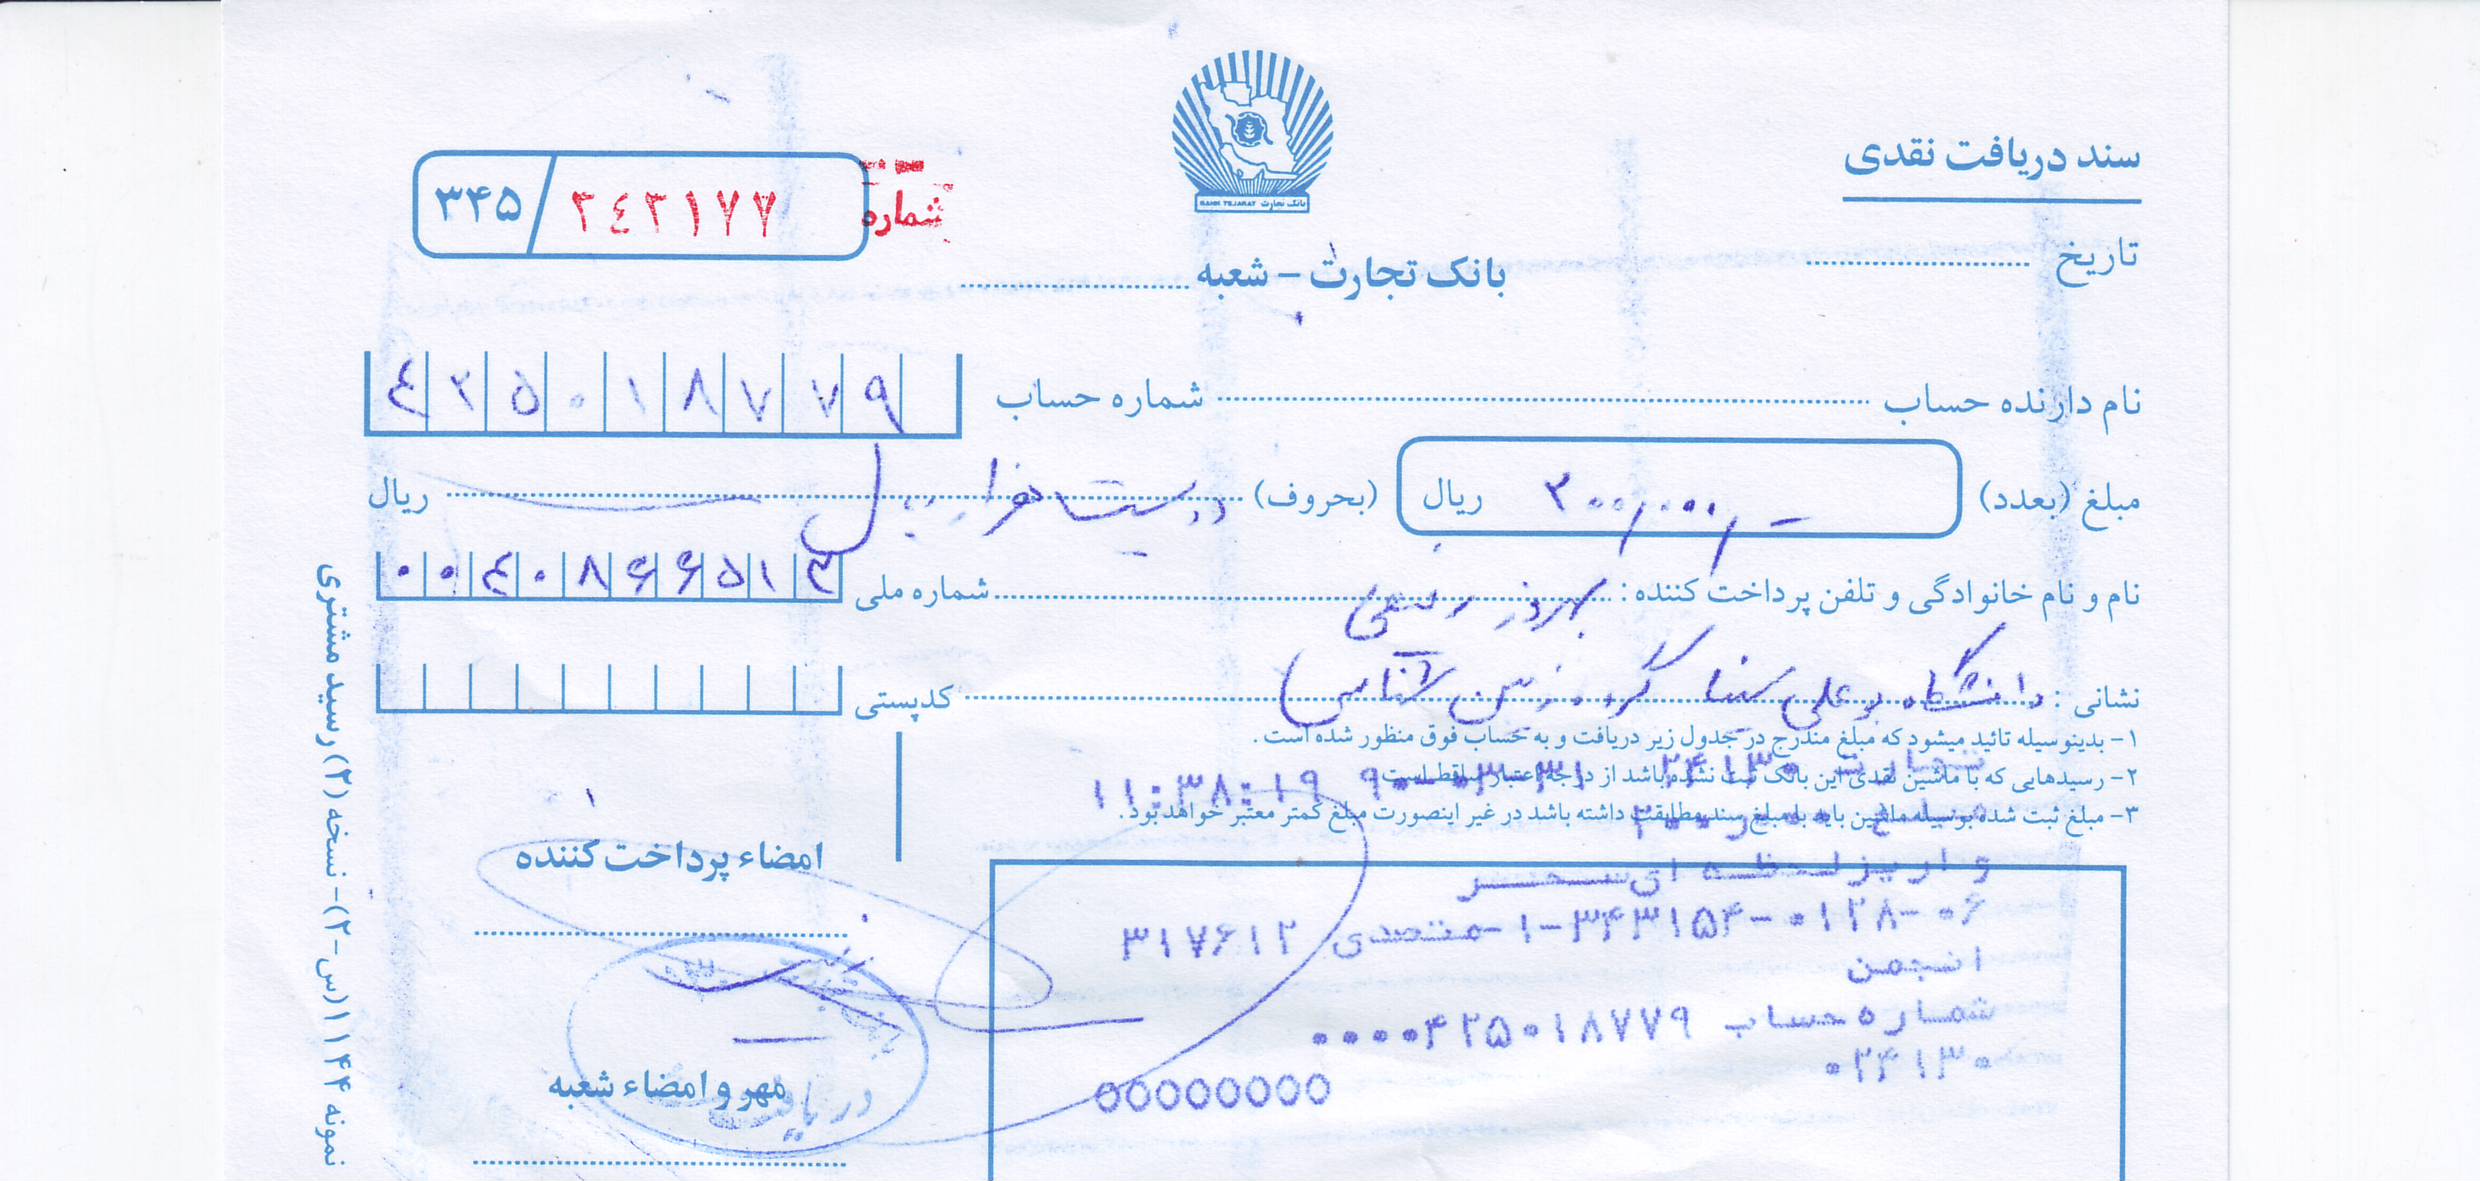 سند دریافت نقدی
بانک تجارت BANK TEJARAT
شماره ۳۴۵/۲٤۲۱۷۷
تاریخ
بانک تجارت – شعبه
نام دارنده حساب شماره حساب ٤۲۵۰۱۸۷۷۹
مبلغ (بعدد) ۲۰۰,۰۰۰,- ریال (بحروف) دویست هزار ریال ریال
نام و نام خانوادگی و تلفن پرداخت کننده : بهروز شماره ملی ۰۰٤۰۸۶۶۵۱۳
نشانی : دانشگاه بوعلی سینا گروه زمین شناسی کدپستی
۱- بدینوسیله تائید میشود که مبلغ مندرج در جدول زیر دریافت و به حساب فوق منظور شده است .
تجارت ۲۴۱۳۰ ۹۰-۰۳-۳۱ ۱۱:۳۸:۱۹
۲- رسیدهایی که با ماشین نقدی این بانک ثبت نشده باشد از درجه اعتبار ساقط است .
مبلغ ۲۰۰,۰۰۰
۳- مبلغ ثبت شده بوسیله ماشین باید با مبلغ سند مطابقت داشته باشد در غیر اینصورت مبلغ کمتر معتبر خواهد بود .
واریز لحظه ای سحر
۰۶-۰۱۲۸-۳۴۳۱۵۴-۱-متصدی ۳۱۷۶۱۲
انجمن
شماره حساب ۰۰۰۰۴۲۵۰۱۸۷۷۹
۰۲۴۱۳۰
00000000
امضاء پرداخت کننده
مهر و امضاء شعبه
دریافت
نمونه ۱۱۱۴۴ (س-۲)- نسخه (۲) رسید مشتری